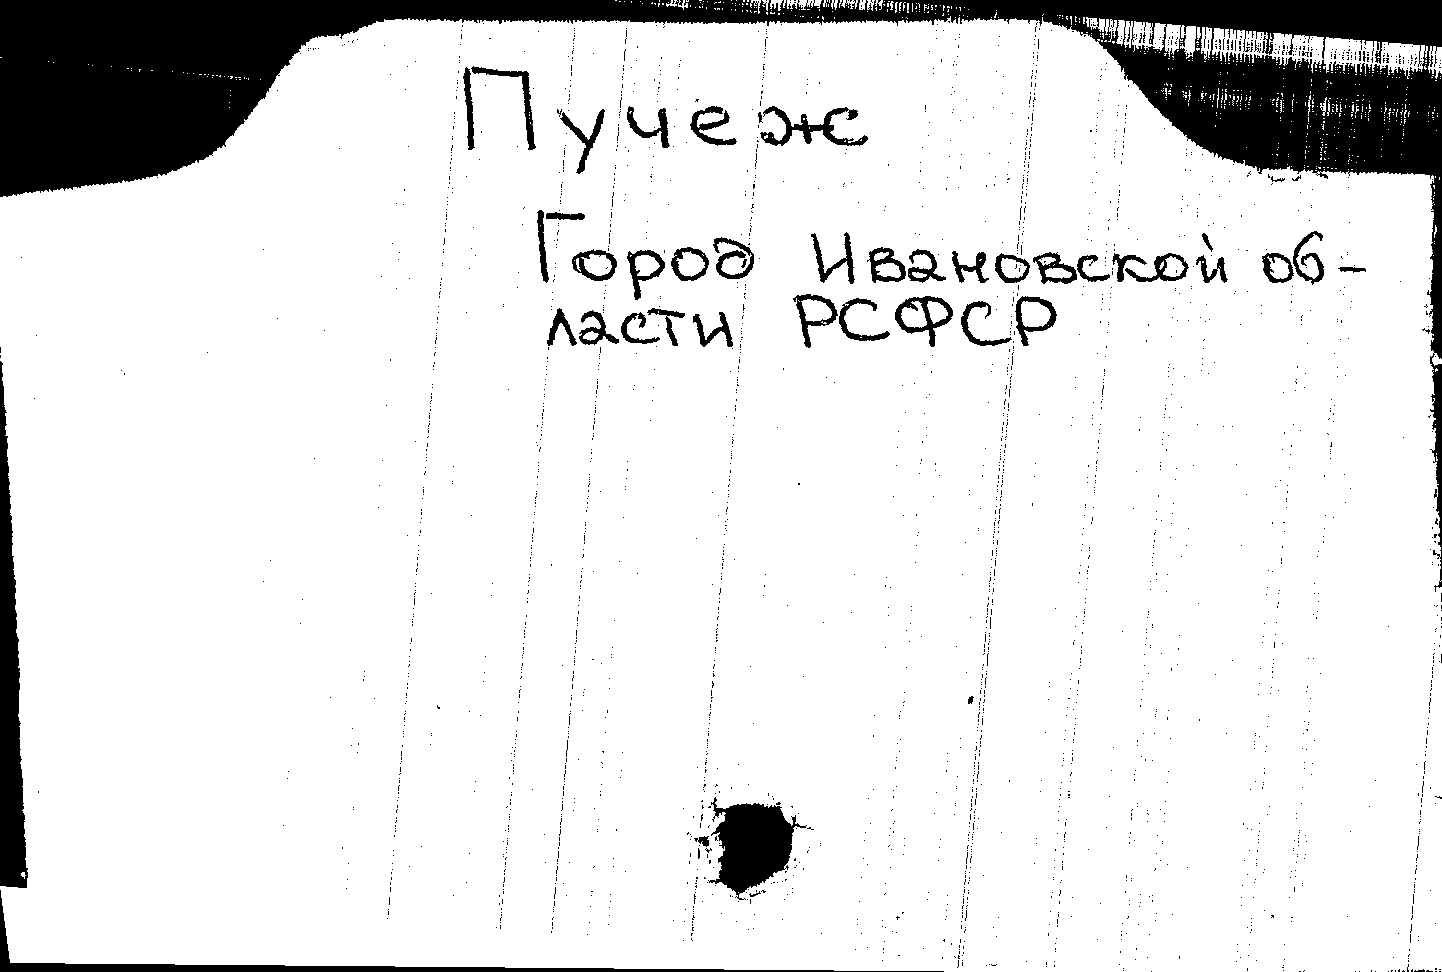 Пучеж
Город Ивановской об-
ласти РСФСР